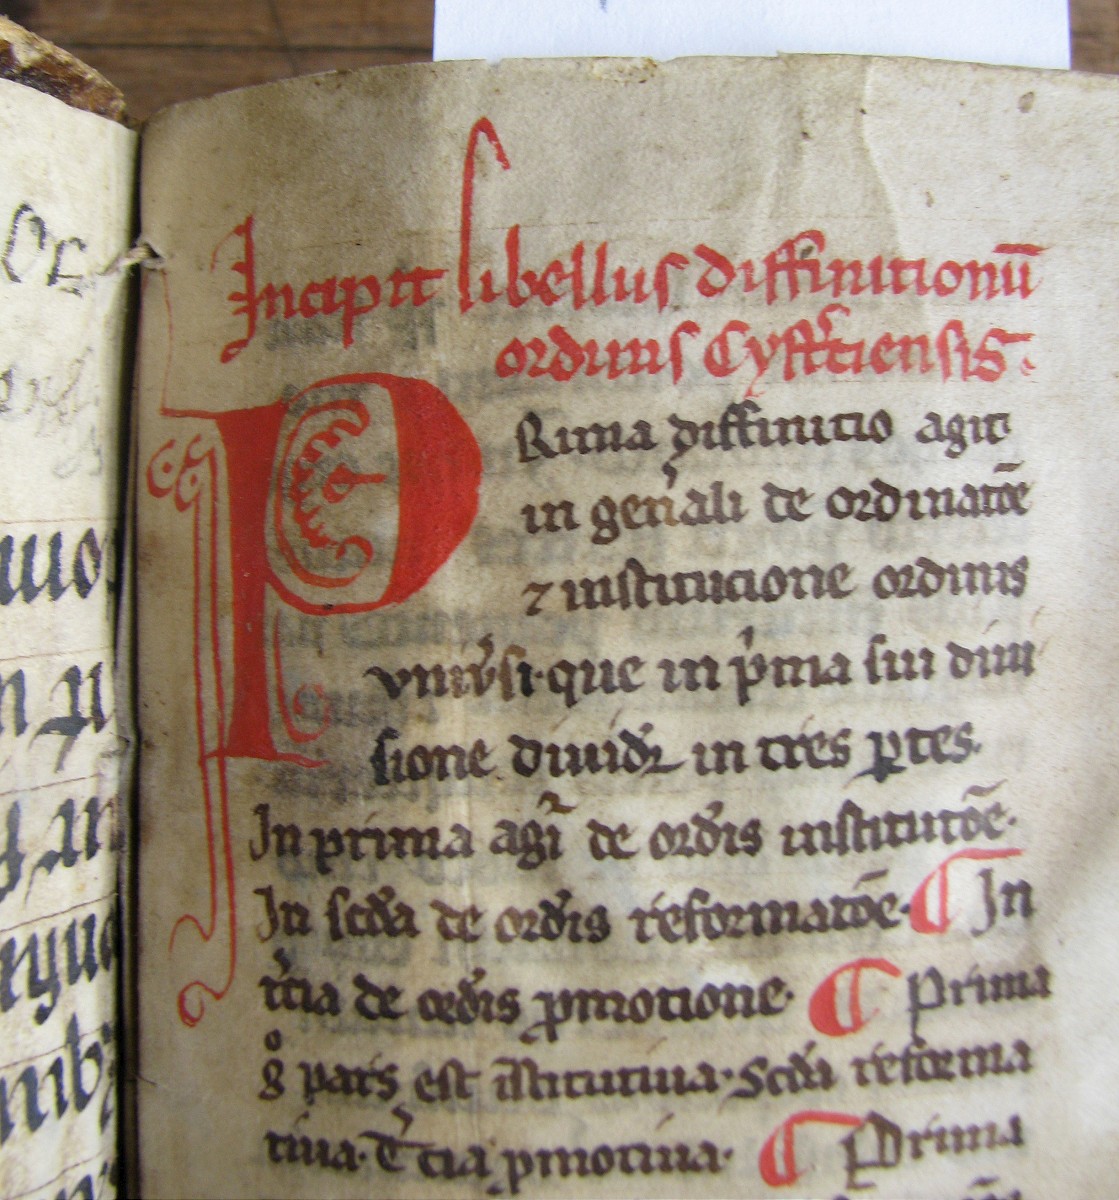 Incipit libellus diffinitionū
ordinis Cystʼciensis.
PRima diffinitio agit
in genʼali de ordinatōe
⁊ institucione ordinis
vnivʼsi. que in pʼma sui diui
sione diuidʼꝛ in tres ꝑtes.
In prima agiʼ de ordʼis institutōe.
In scdʼa de ordʼis reformatōe. ¶ In
tʼcia de ordʼis ꝓmotione. ¶ Prima
gͦ pars est īstitutiua. Scdʼa reforma
tiua. Tʼcia ꝓmotiua. ¶ Prima